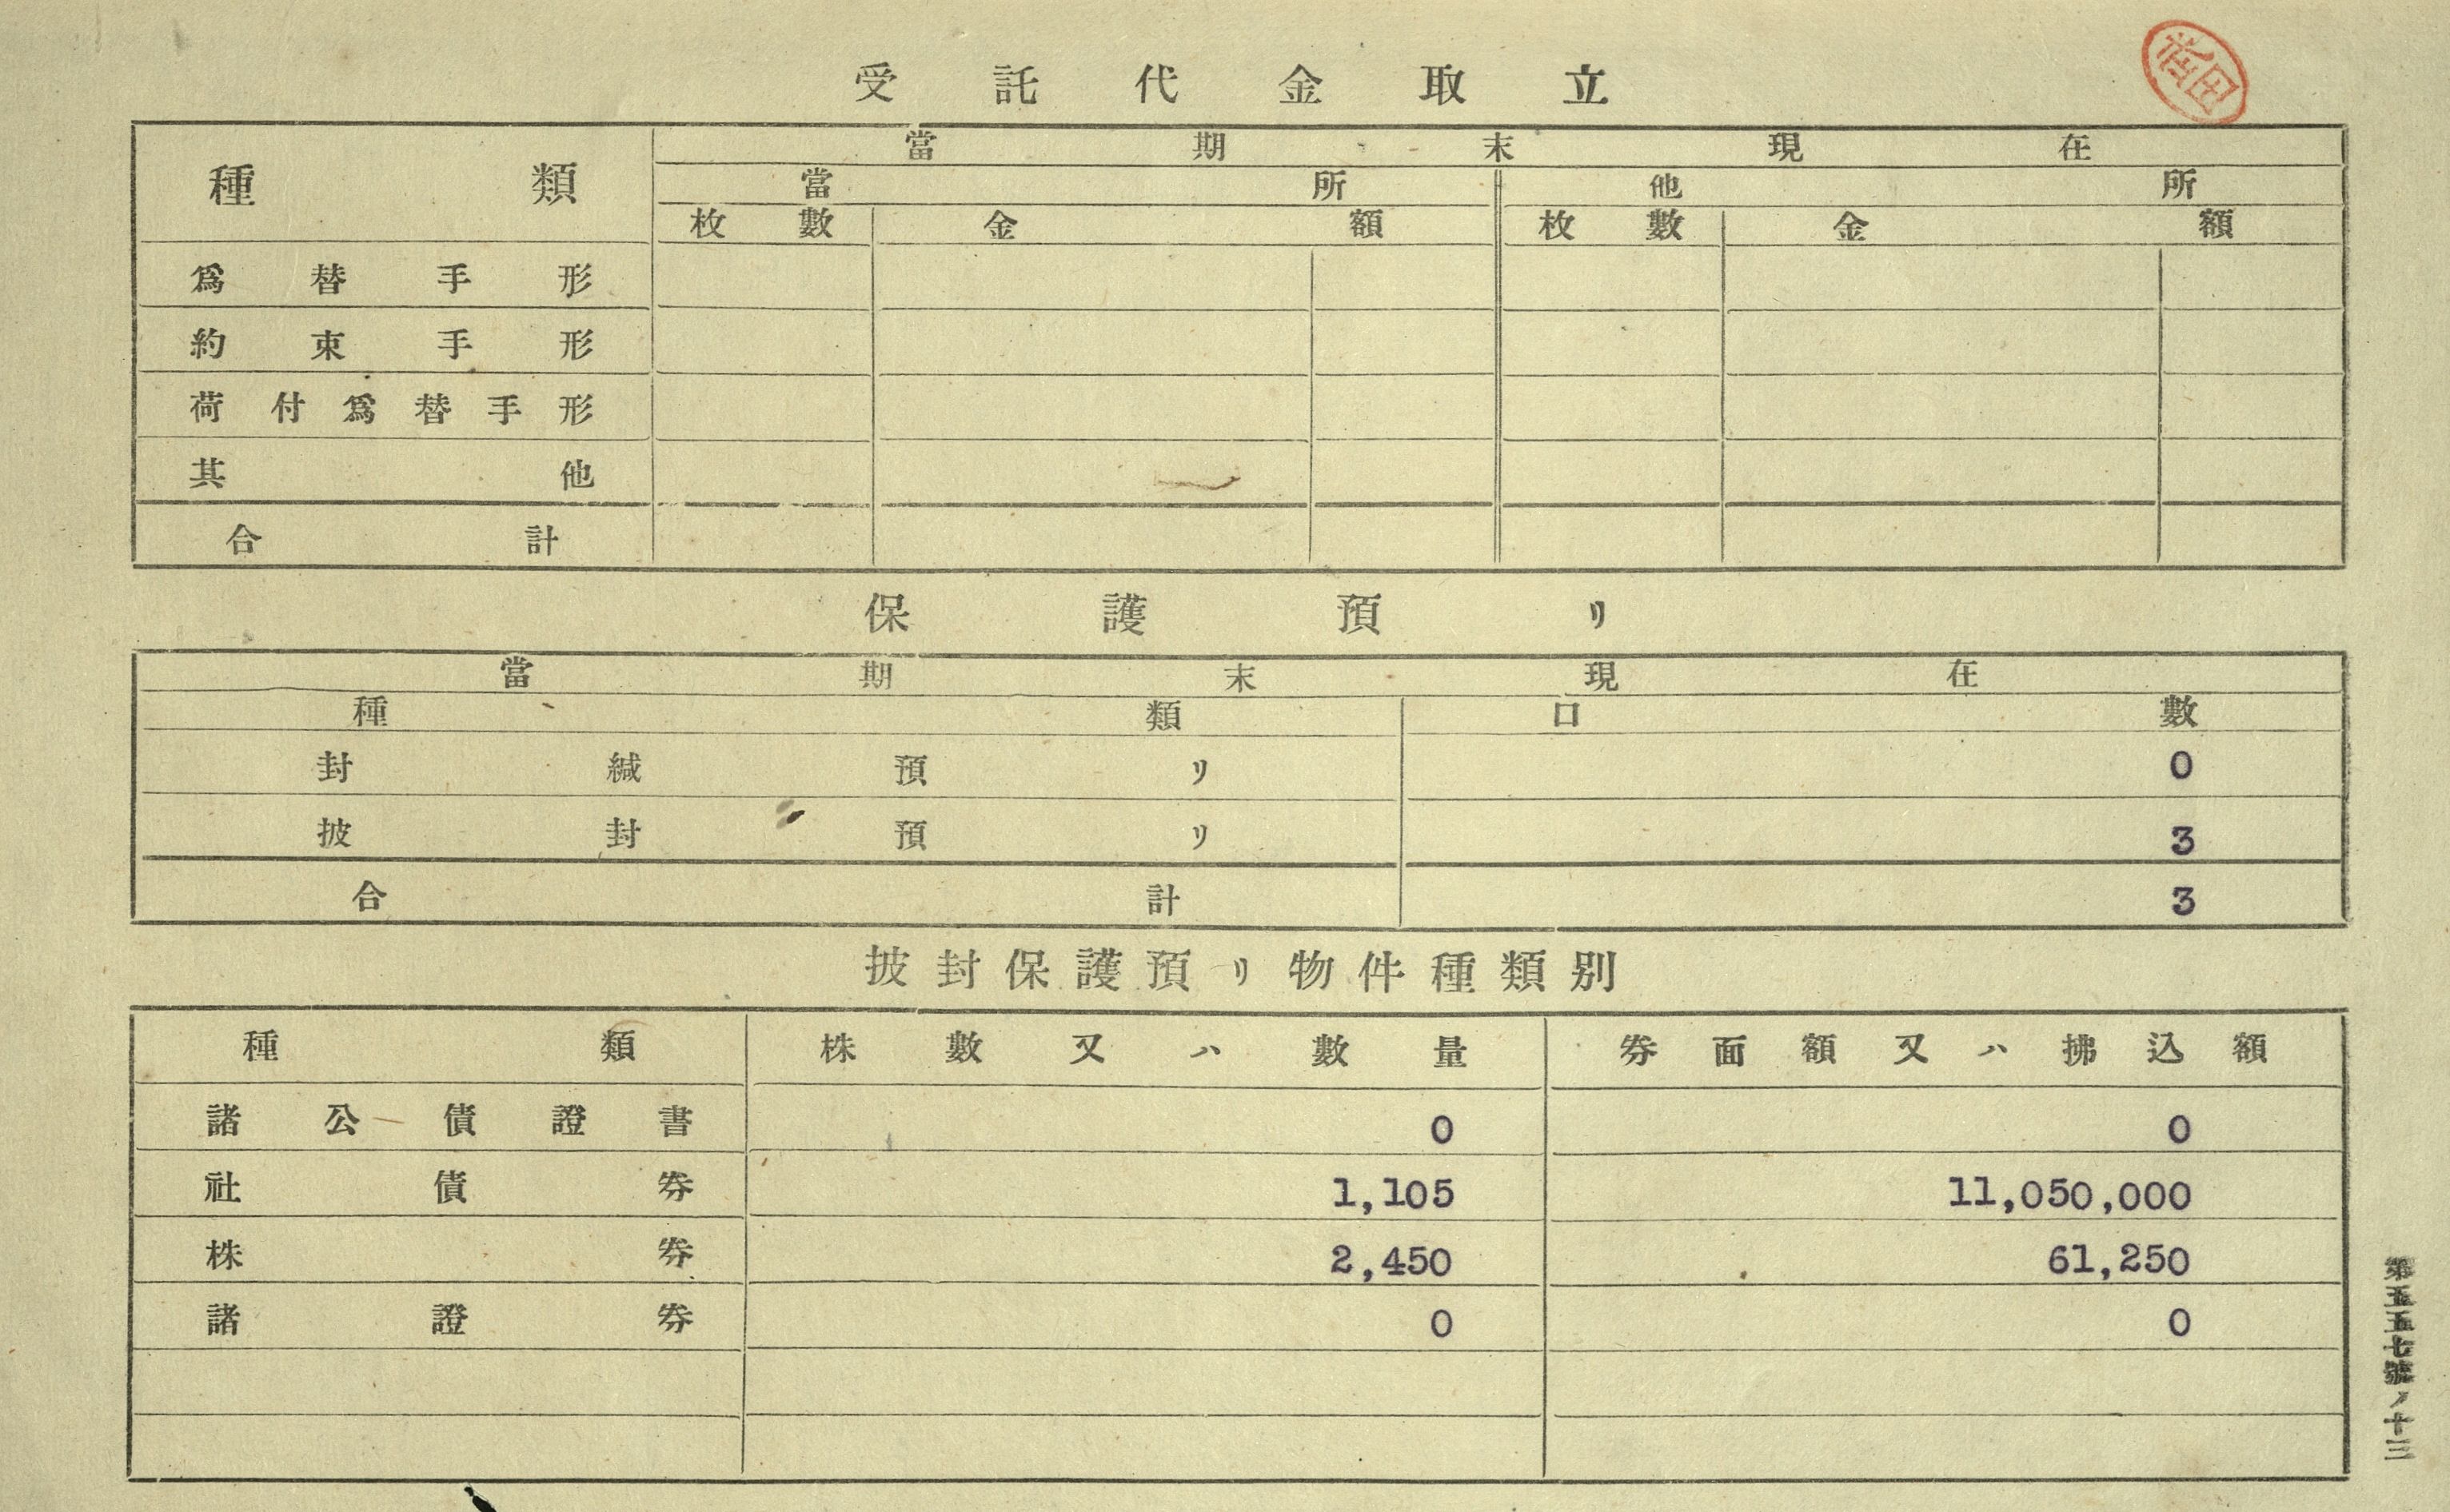 受託代金取立
種類 當期末現在
當所 他所
枚數 金額 枚數 金額
爲替手形
約束手形
荷付爲替手形
其他
合計
保護預リ
當期末現在
種類 口數
封緘預リ 0
披封預リ 3
合計 3
披封保護預リ物件種類別
種類 株數又ハ數量 券面額又ハ拂込額
諸公債證書 0 0
社債券 1,105 11,050,000
株券 2,450 61,250
諸證券 0 0
第五五七號ノ十三